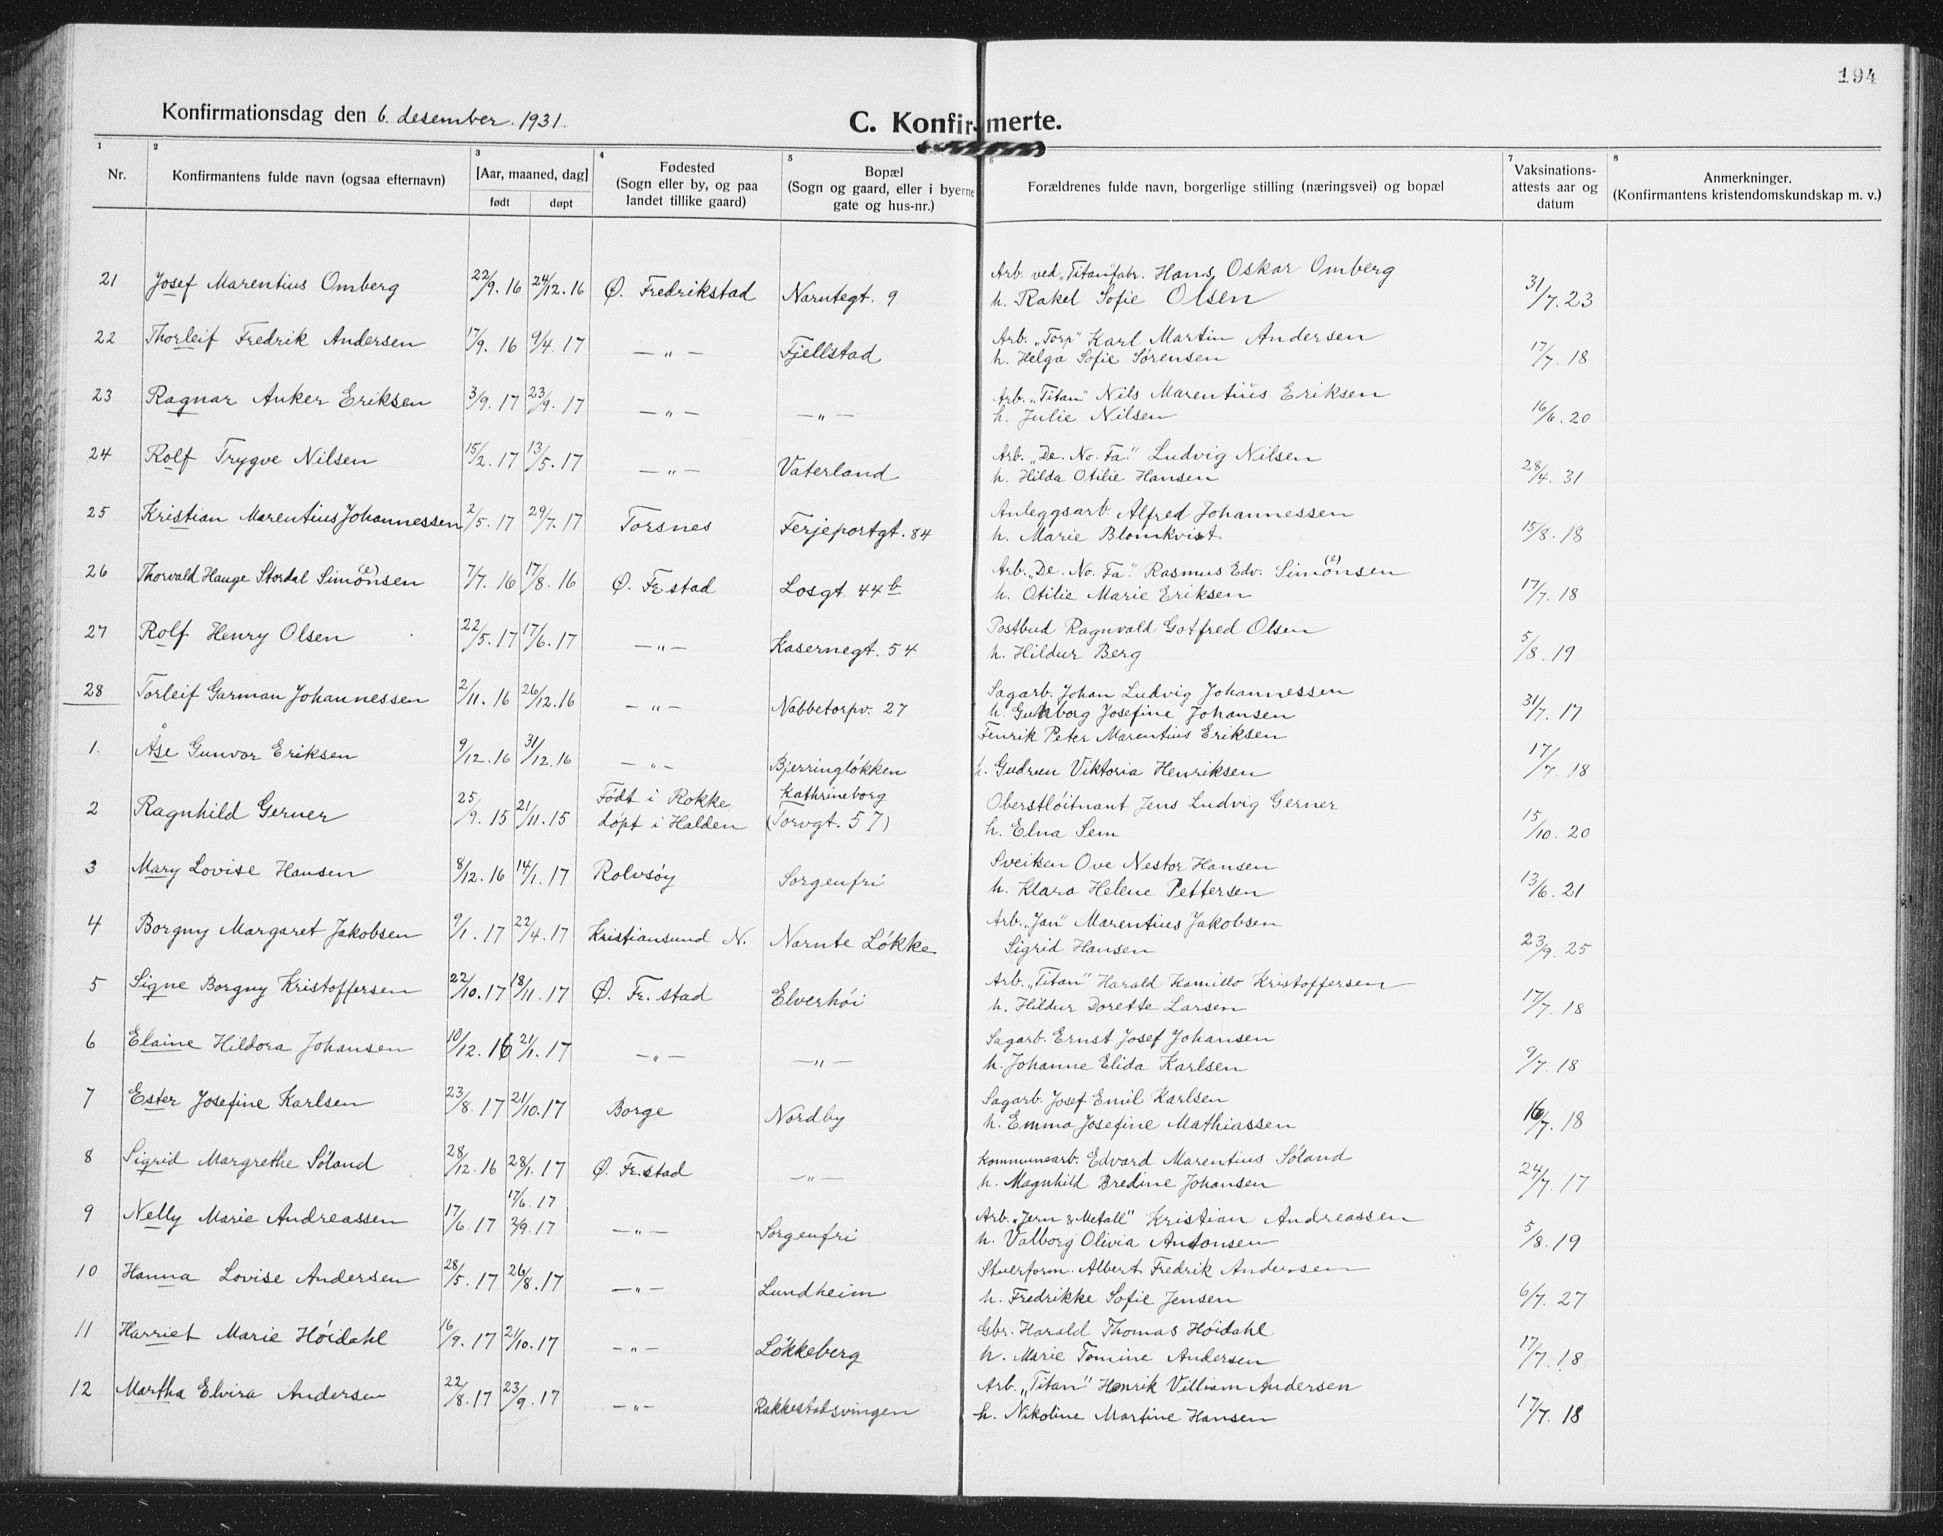 194
Konfirmationsdag den 6. desember 1931.
C. Konfirmerte.
1 2 3 4 5 6 7 8
Nr. Konfirmantens fulde navn (ogsaa efternavn) [Aar, maaned, dag] født døpt Fødested (Sogn eller by, og paa landet tillike gaard) Bopæl (Sogn og gaard, eller i byerne gate og hus-nr.) Forældrenes fulde navn, borgerlige stilling (næringsvei) og bopæl Vaksinations-attests aar og datum Anmerkninger. (Konfirmantens kristendomskundskap m. v.)
21 Josef Marentius Omberg 22/9.16 24/12.16 Ø. Fredrikstad Narntegt. 9 Arb. ved „Titan“fabr. Hans Oskar Omberg
h. Rakel Sofie Olsen 31/7.23
22 Thorleif Fredrik Andersen 17/9.16 9/4.17 —„— Fjellstad Arb. „Torp“ Karl Martin Andersen
h. Helga Sofie Sørensen 17/7.18
23 Ragnar Anker Eriksen 3/9.17 23/9.17 —„— —„— Arb. „Titan“ Nils Marentius Eriksen
h. Julie Nilsen 16/6.20
24 Rolf Trygve Nilsen 15/2.17 13/5.17 —„— Vaterland Arb. „De. No. Fa.“ Ludvig Nilsen
h. Hilda Otilie Hansen 28/4.31
25 Kristian Marentius Johannessen 2/5.17 29/7.17 Torsnes Ferjeportgt. 84 Anleggsarb. Alfred Johannessen
h. Marie Blomkvist 15/8.18
26 Thorvald Hauge Stordal Simonsen (e) 7/7.16 17/8.16 Ø. Fr.stad Losgt. 44b Arb. „De. No. Fa.“ Rasmus Edv. Simonsen (e)
h. Otilie Marie Eriksen 17/7.18
27 Rolf Henry Olsen 22/5.17 17/6.17 —„— Kasernegt. 54 Postbud Ragnvald Gotfred Olsen
h. Hildur Berg 5/8.19
28 Torleif Garman Johannessen 2/11.16 26/12.16 —„— Nabbetorpv. 27 Sagarb. Johan Ludvig Johannessen
h. Gunborg Josefine Johansen 31/7.17
1. Åse Gunvor Eriksen 9/12.16 31/12.16 —„— Bjerringløkken Fenrik Peter Marentius Eriksen
h. Gudrun Viktoria Henriksen 17/7.18
2 Ragnhild Gerner 25/9.15 21/11.15 Født i Rokke, døpt i Halden Kathrineborg (Torvgt. 57) Oberstløitnant Jens Ludvig Gerner
h. Elna Sem 15/10.20
3 Mary Lovise Hansen 8/12.16 14/1.17 Rolvsøy Sorgenfri Sveiser Ove Nestor Hansen
h. Klara Helene Pettersen 13/6.21
4 Borgny Margaret Jakobsen 9/1.17 22/4.17 Kristiansund N. Narnte Løkke Arb. „Jan“ Marentius Jakobsen
Sigrid Hansen 23/9.25
5 Signe Borgny Kristoffersen 22/10.17 18/11.17 Ø. Fr.stad Elverhøi Arb. „Titan“ Harald Kamillo Kristoffersen
h. Hildur Dorette Larsen 17/7.18
6 Elaine Hildora Johansen 10/12.16 21/1.17 —„— —„— Sagarb. Ernst Josef Johansen
h. Johanne Elida Karlsen 9/7.18
7 Ester Josefine Karlsen 23/8.17 21/10.17 Borge Nordby Sagarb. Josef Emil Karlsen
h. Emma Josefine Mathiassen 16/7.18
8 Sigrid Margrethe Søland 28/12.16 28/1.17 Ø. Fr.stad —„— Kommunearb. Edvard Marentius Søland
h. Magnhild Bredine Johansen 24/7.17
9 Nelly Marie Andreassen 17/6.17 17/6.17 2/9.17 —„— Sorgenfri Arb. „Jern & Metall“ Kristian Andreassen
h. Valborg Olivia Antonsen 5/8.19
10 Hanna Lovise Andersen 28/5.17 26/8.17 —„— Lundheim Stuerform. Albert Fredrik Andersen
h. Fredrikke Sofie Jensen 6/7.27
11 Harriet Marie Høidahl 16/9.17 21/10.17 —„— Løkkeberg Gbr. Harald Thomas Høidahl
h. Marie Tomine Andersen 17/7.18
12 Martha Elvira Andersen 22/8.17 23/9.17 —„— Rakkestadsvingen Arb. „Titan“ Henrik Villiam Andersen
h. Nikoline Martine Hansen 17/7.18